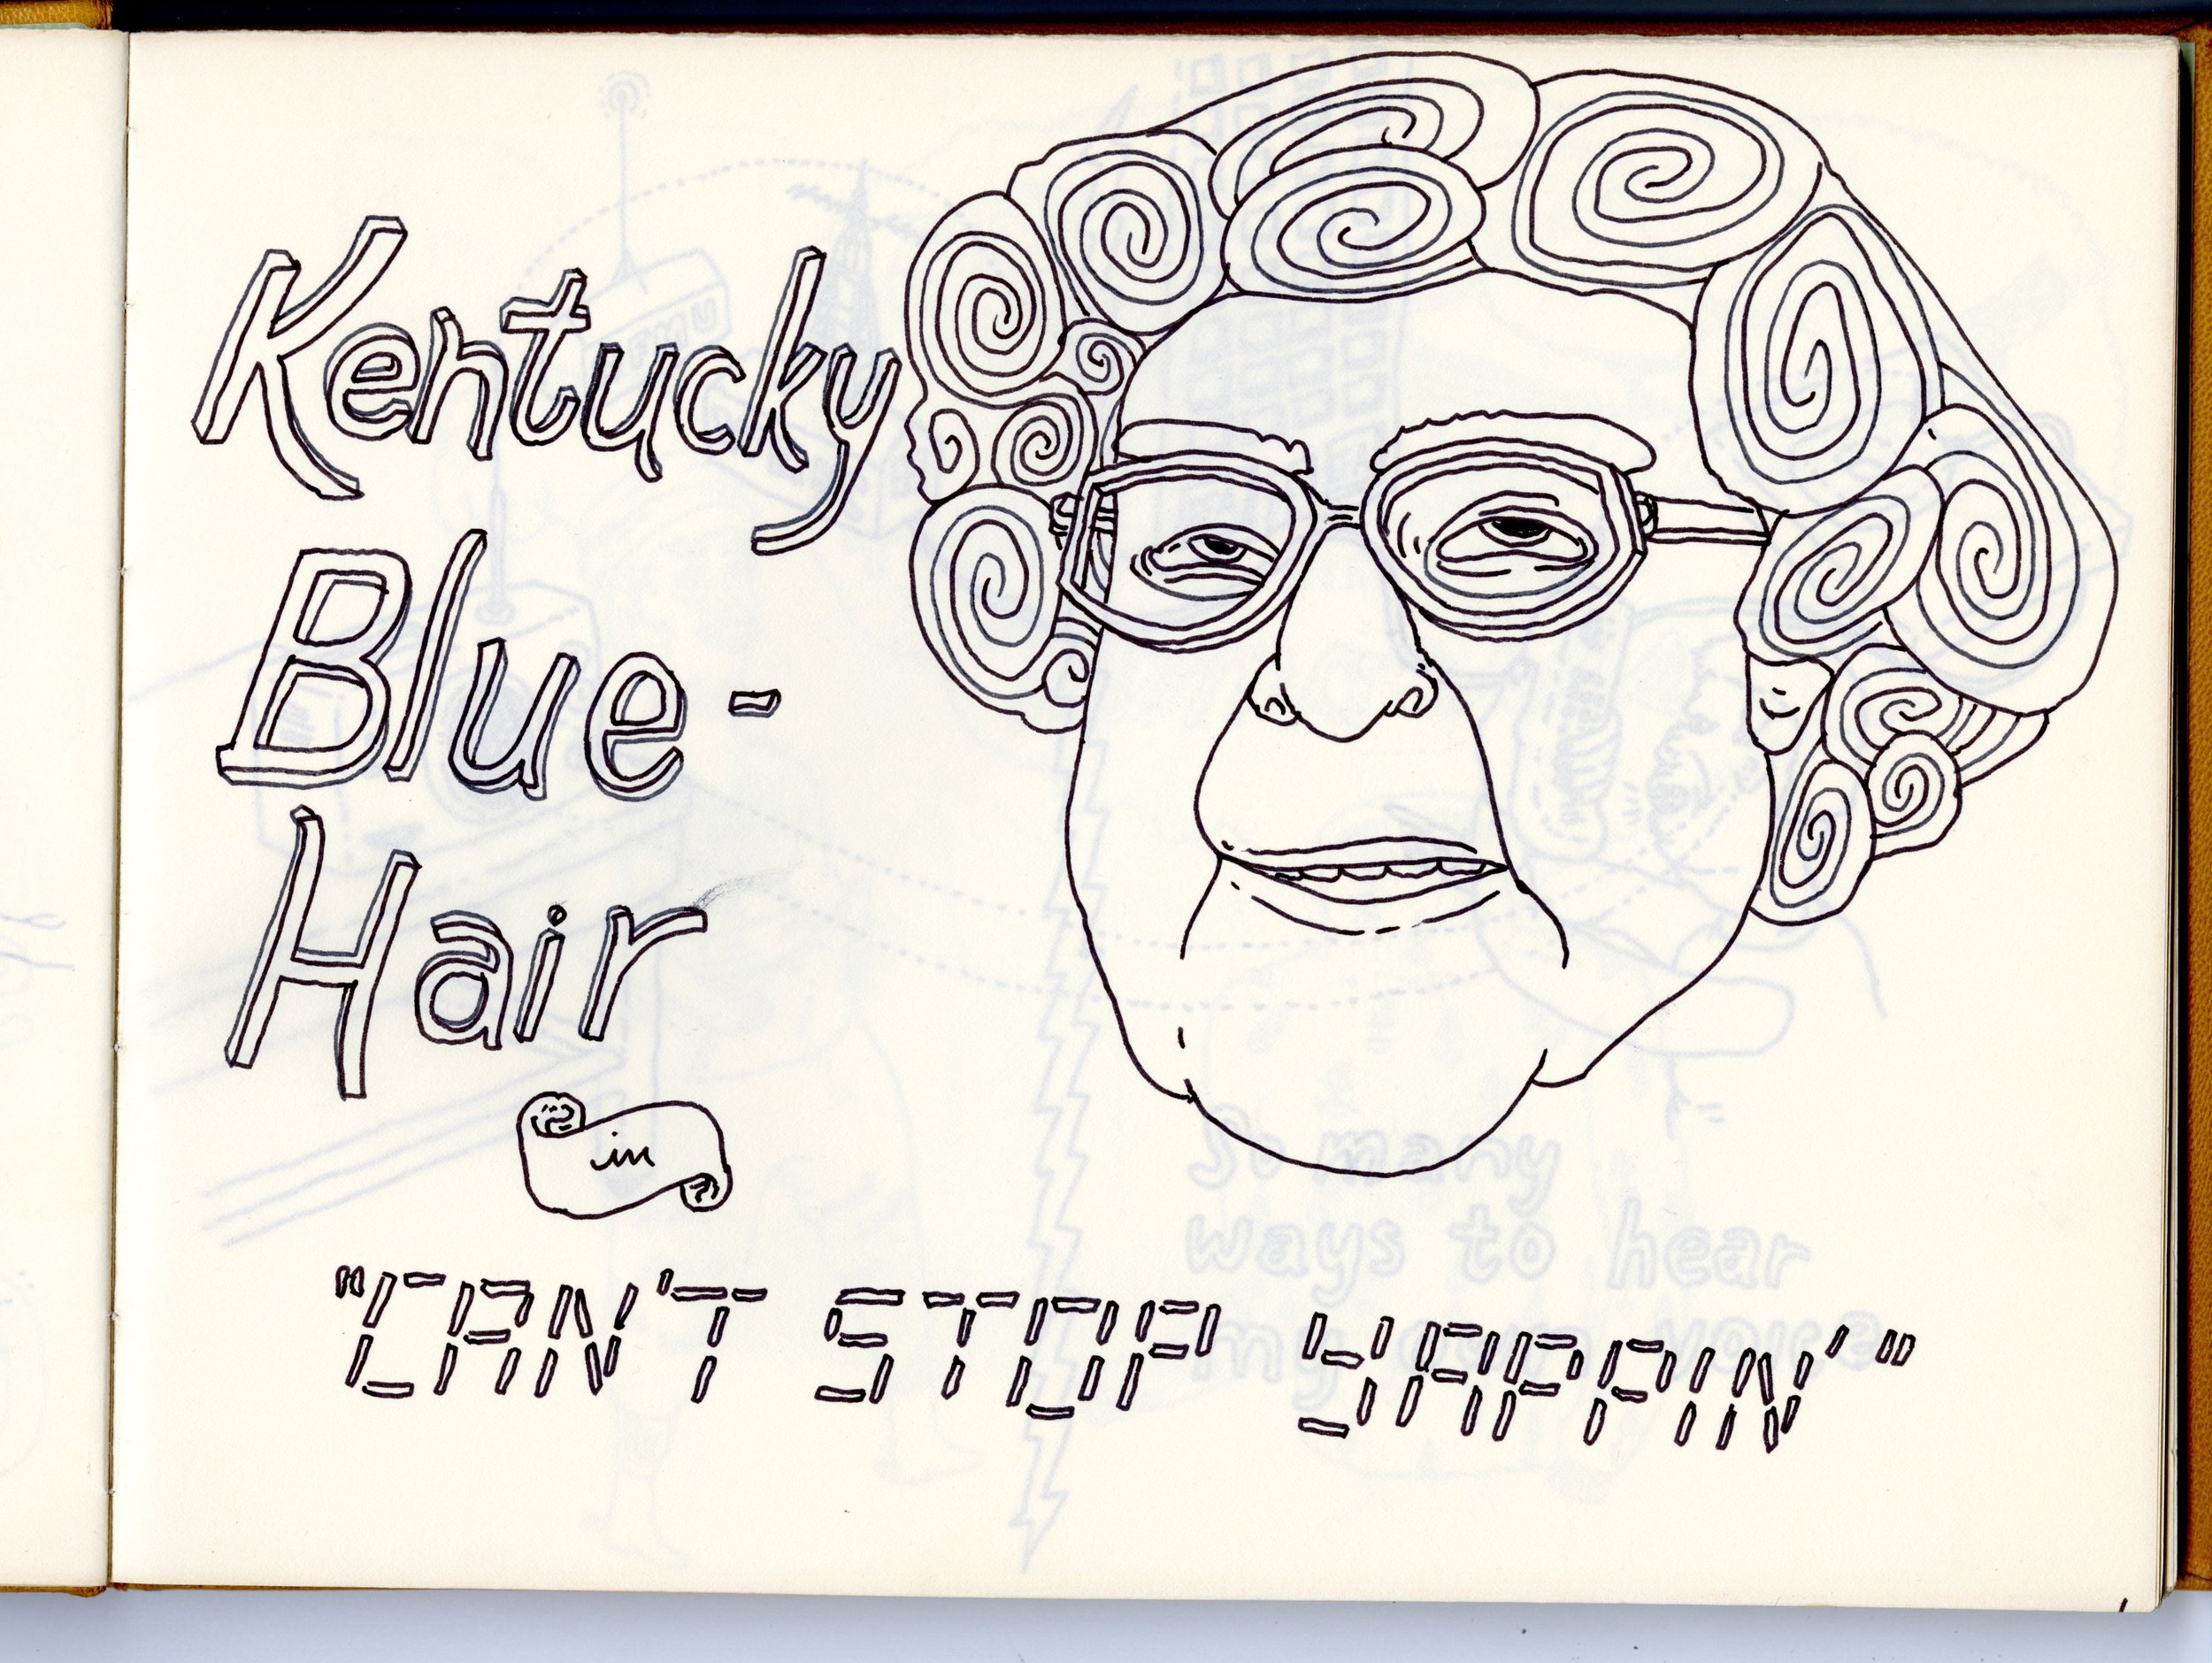 Kentucky
Blue-
Hair
in
"CAN'T STOP YAPPIN'"
So many
ways to hear
my own voice